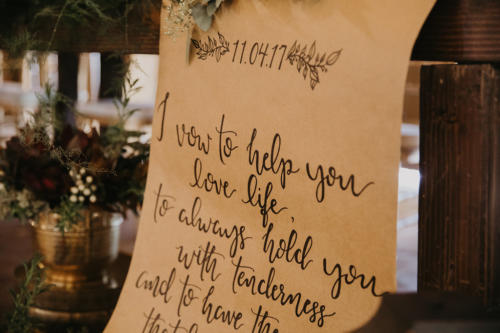 11.04.17
I vow to help you
love life,
to always hold you
with tenderness
and to have the